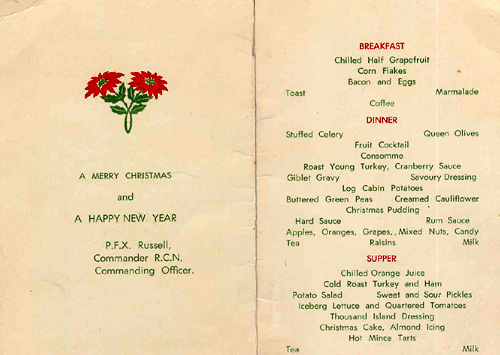 A MERRY CHRISTMAS
and
A HAPPY NEW YEAR
P.F.X. Russell,
Commander R.C.N.
Commanding Officer.
BREAKFAST
Chilled Half Grapefruit
Corn Flakes
Bacon and Eggs
Toast Marmalade
Coffee
DINNER
Stuffed Celery Queen Olives
Fruit Cocktail
Consomme
Roast Young Turkey, Cranberry Sauce
Giblet Gravy Savoury Dressing
Log Cabin Potatoes
Buttered Green Peas Creamed Cauliflower
Christmas Pudding
Hard Sauce Rum Sauce
Apples, Oranges, Grapes, Mixed Nuts, Candy
Tea Raisins Milk
SUPPER
Chilled Orange Juice
Cold Roast Turkey and Ham
Potato Salad Sweet and Sour Pickles
Iceberg Lettuce and Quartered Tomatoes
Thousand Island Dressing
Christmas Cake, Almond Icing
Hot Mince Tarts
Tea Milk